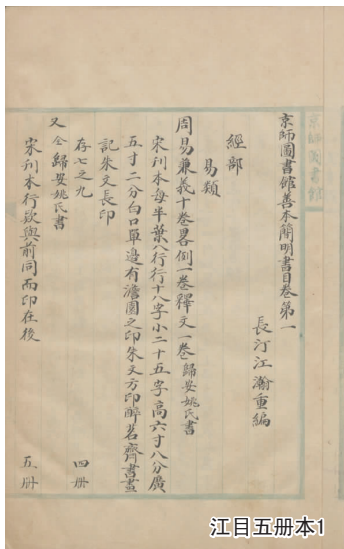 京師圖書館善本簡明書目卷第一
長汀江瀚重編
經部
易類
周易兼義十卷畧例一卷釋文一卷歸安姚氏書
宋刊本每半葉八行行十八字小二十五字高六寸八分廣
五寸二分白口單邊有澹園之印朱文方印醉茗齋書畫
記朱文長印
存七之九 四册
又仝歸安姚氏書
宋刊本行欵與前同而印在後
五册
京師圖書館
江目五册本1